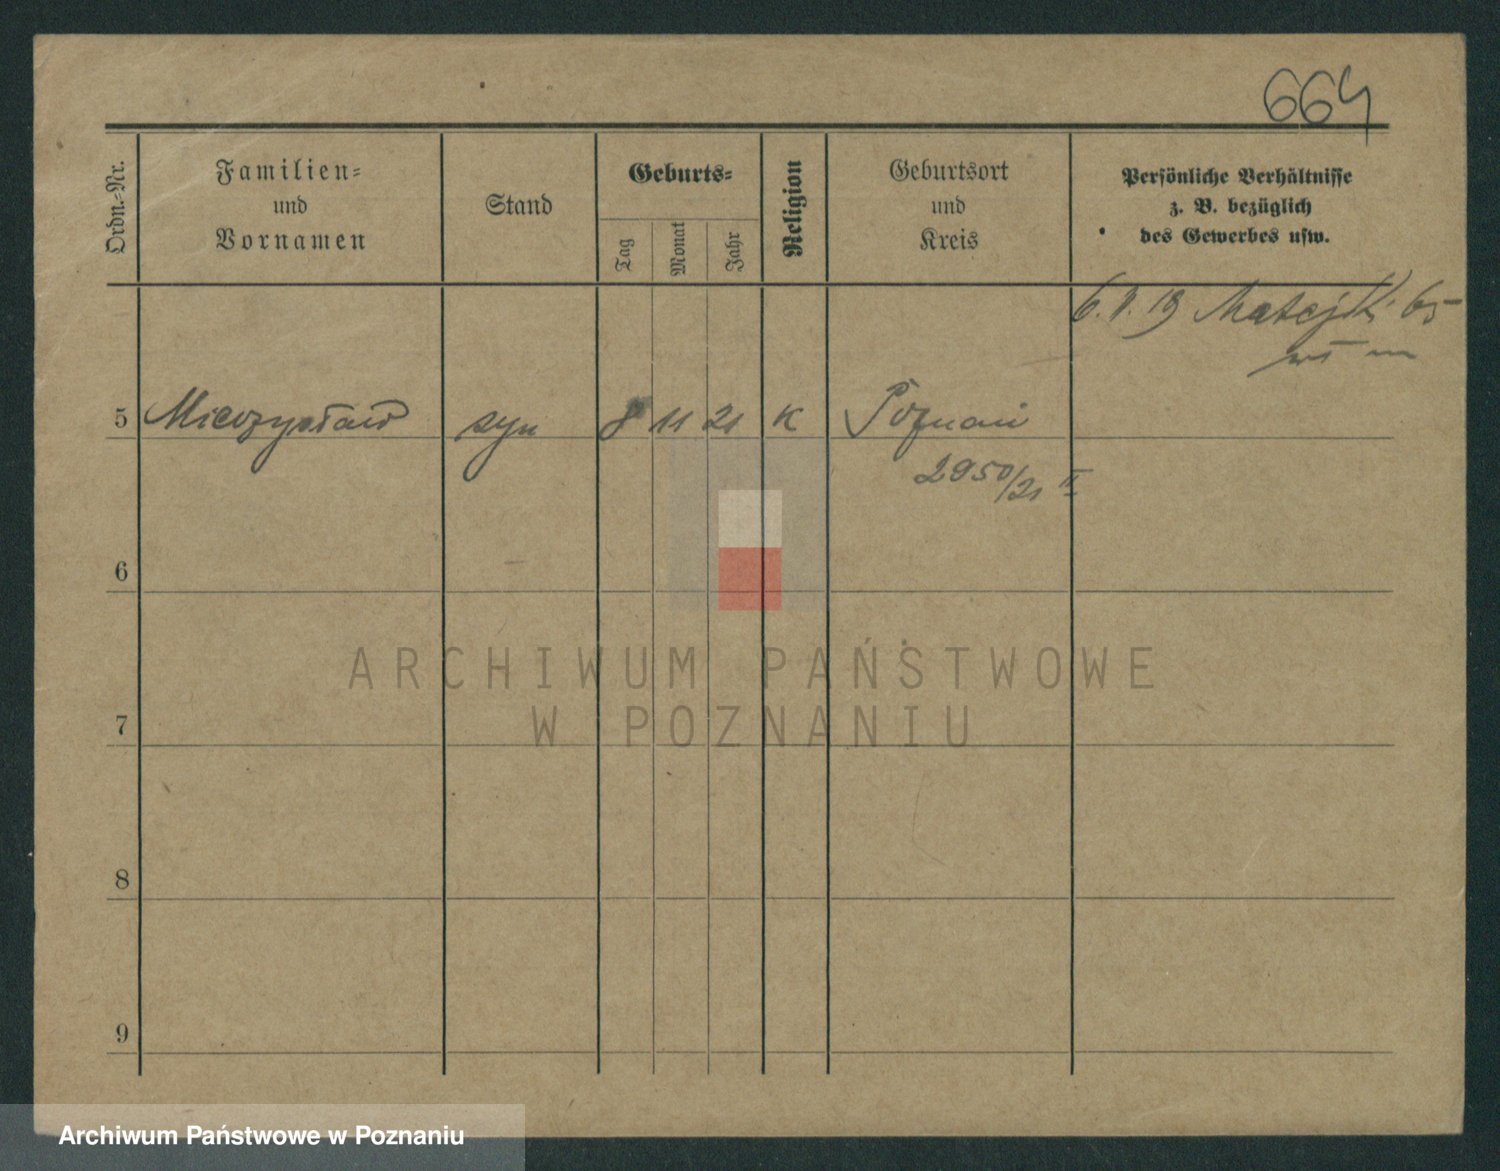 664
Ordn.-Nr.
Familien-
und
Vornamen
Stand
Geburts-
Tag
Monat
Jahr
Religion
Geburtsort
und
Kreis
Persönliche Verhältnisse
z. B. bezüglich
des Gewerbes usw.
6. V. 19 Matejki 65
5 Mieczysław syn 8 11 21 K Poznań
2950/21 II
6
ARCHIWUM PAŃSTWOWE
W POZNANIU
7
8
9
Archiwum Państwowe w Poznaniu